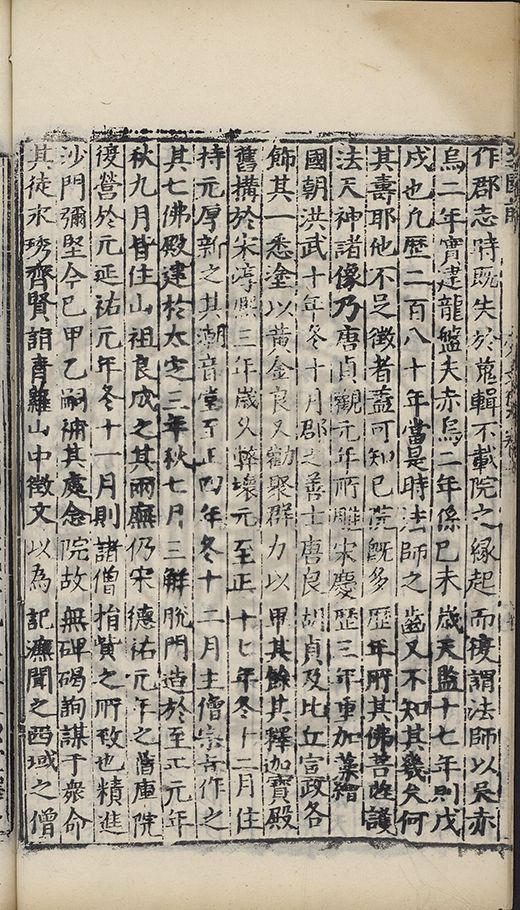 作郡志時既失於蒐輯不載院之緣起而複謂法師以吳赤
烏二年實建龍盤夫赤烏二年係巳未歲天監十七年則戊
戌也凢歷二百八十年當是時法師之齒又不知其幾矣何
其壽耶他不足徵者蓋可知已院旣多歷年所其佛菩薩護
法天神諸像乃唐貞觀元年所雕宋慶歷三年重加藻繪
國朝洪武十年冬十月郡之善士唐良胡貞及比丘宣政各
飾其一悉塗以黃金良又勸聚群力以甲其餘其釋迦寶殿
舊搆於宋淳熙三年歲久弊壞元至正十七年冬十二月住
持元厚新之其潮音堂至正四年冬十二月主僧宗吉作之
其七佛殿建於太定三年秋七月三解脫門造於至正元年
秋九月皆住山祖良成之其兩廡仍宋德祐元年之舊庫院
復營於元延祐元年冬十一月則諸僧捐貲之所致也精進
沙門彌堅今巳甲乙嗣補其處念院故無碑碣詢謀于衆命
其徒永琇齊賢詣青蘿山中徵文以為記濂聞之西域之僧